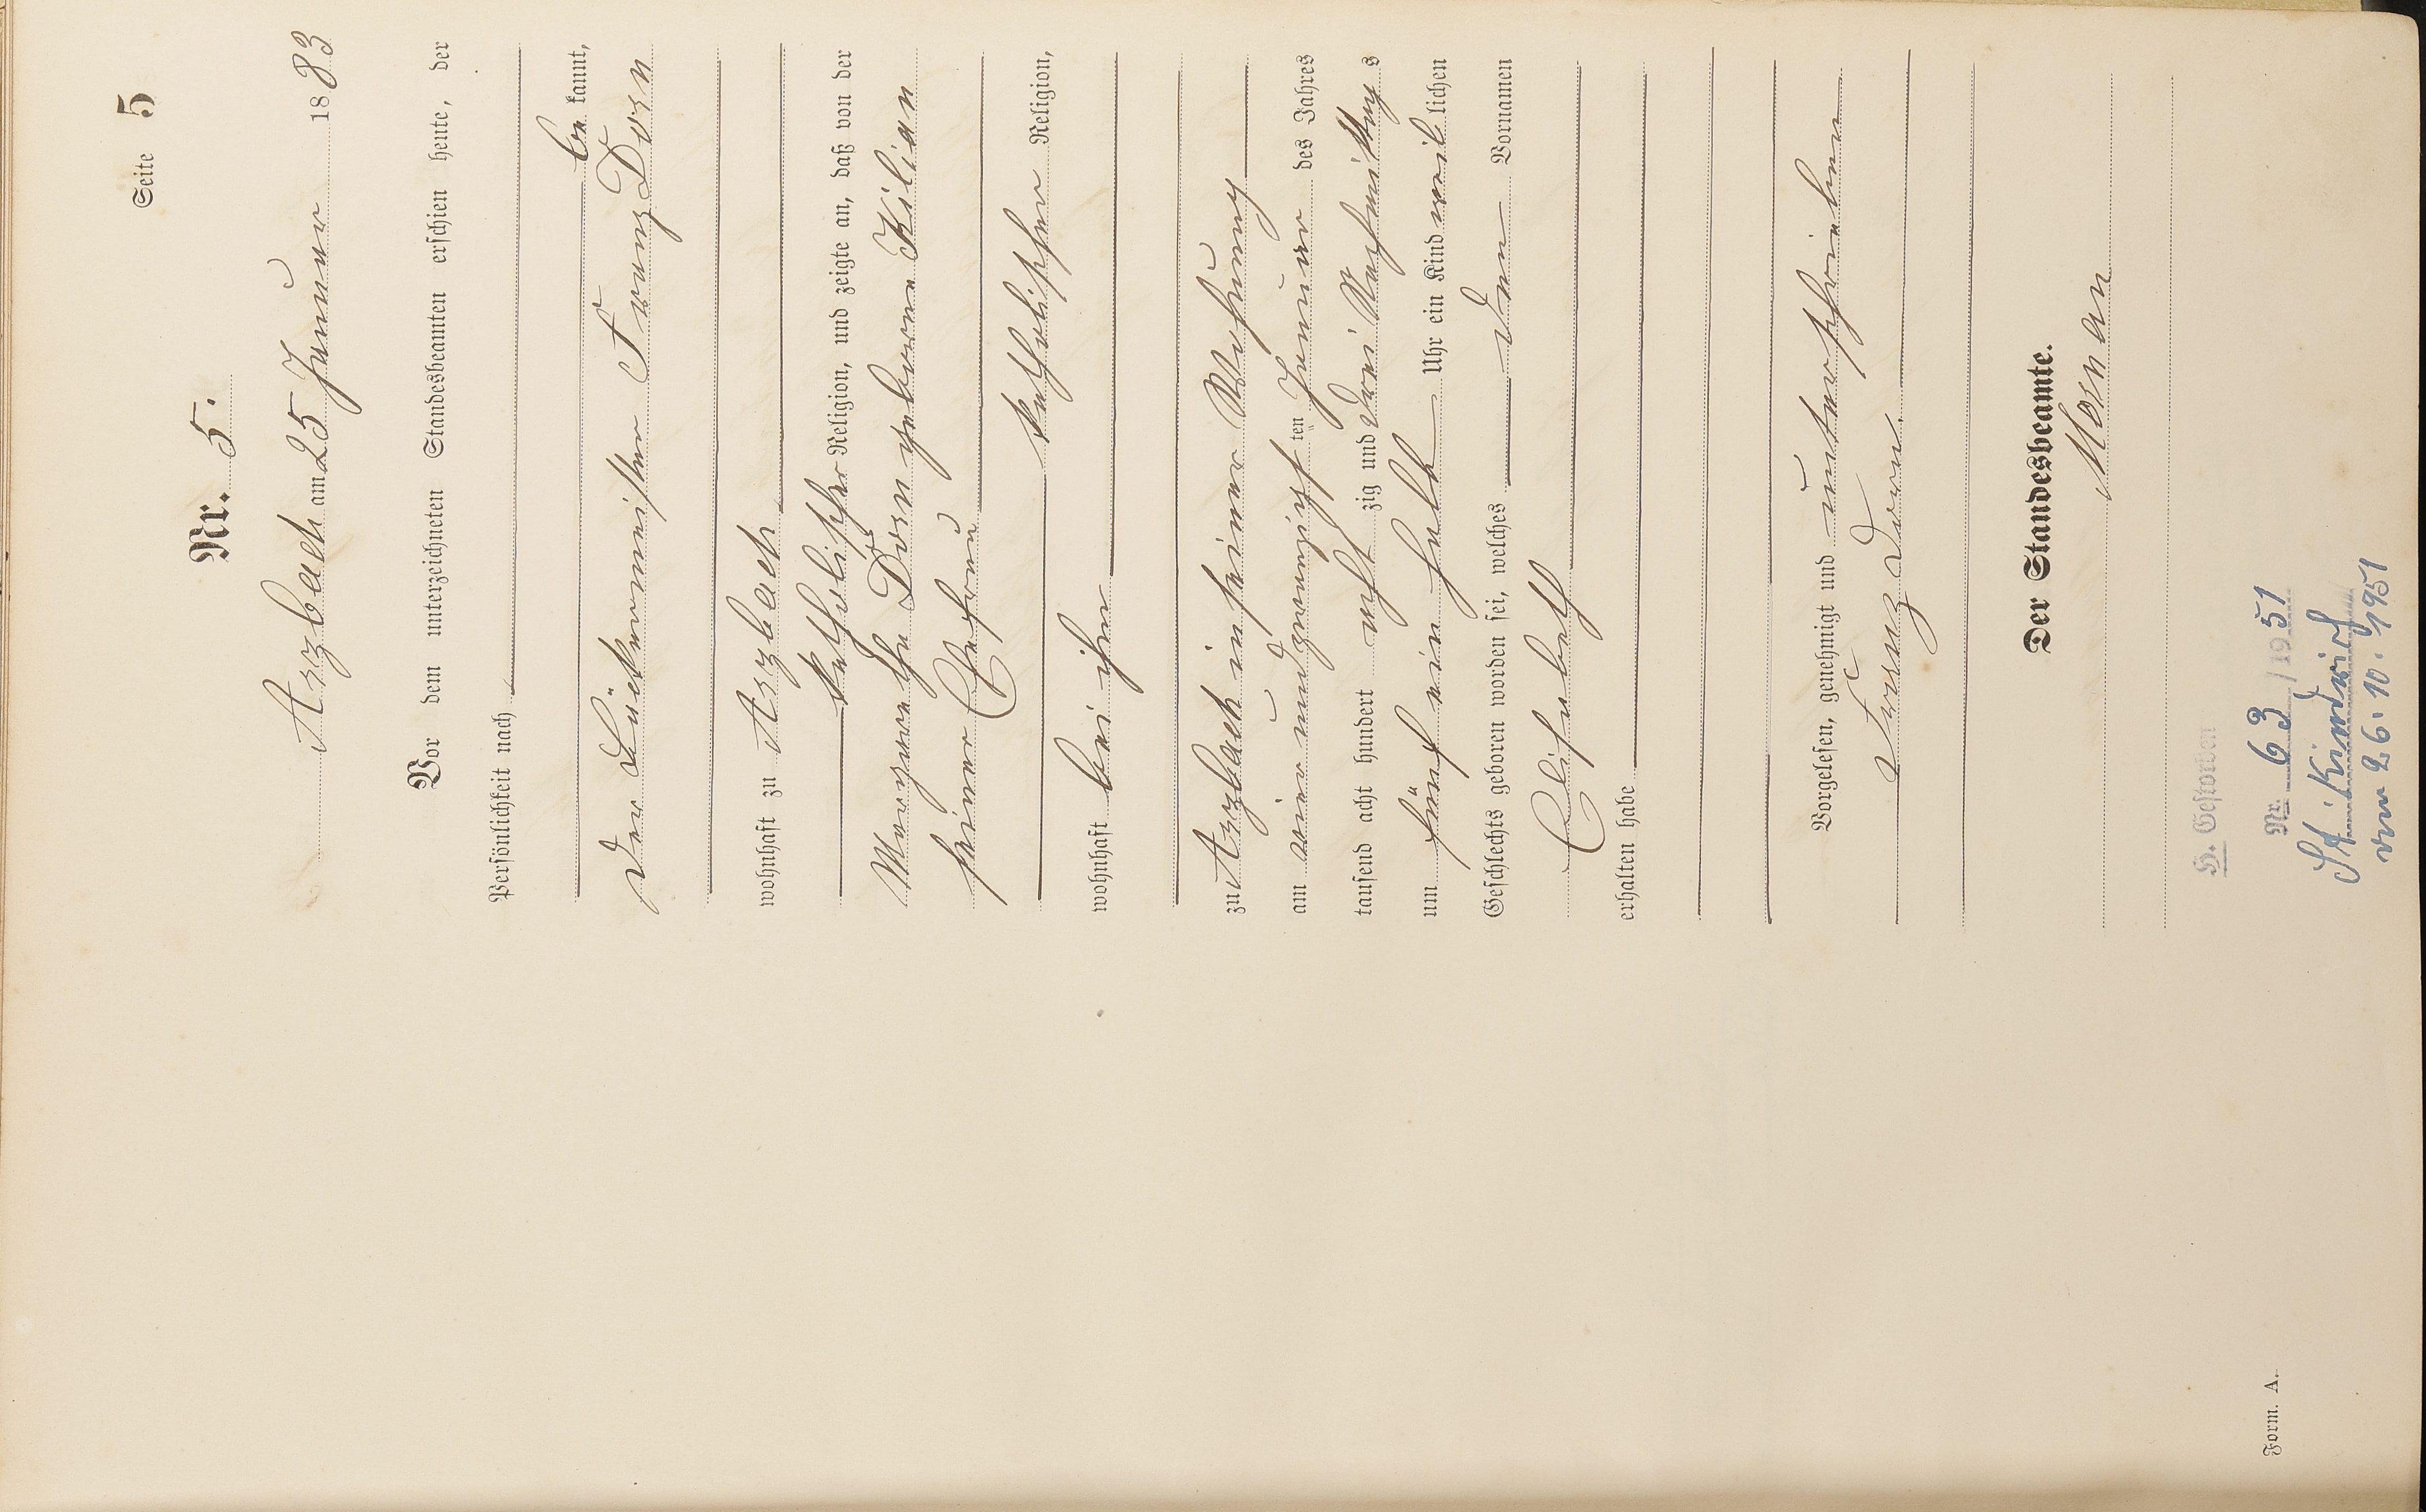 Seite 5
Nr. 5.
Arzbach am 25 Januar 1883
Vor dem unterzeichneten Standesbeamten erschien heute, der
Persönlichkeit nach
be kannt,
der Bäckermeister Franz Dorn
wohnhaft zu Arzbach
katholischer Religion, und zeigte an, daß von der
Margaretha Dorn geborene Kilian
seiner Ehefrau
katholischer Religion,
wohnhaft bei ihm
zu Arzbach in seiner Wohnung
am vier und zwanzigsten Januar des Jahres
tausend acht hundert acht zig und drei Nachmittags
um fünf ein halb Uhr ein Kind weiblichen
Geschlechts geboren worden sei, welches den Vornamen
Elisabeth
erhalten habe
Vorgelesen, genehmigt und unterschrieben
Franz Dorn.
Der Standesbeamte.
H. Gestorben
Nr. 63/1951
St. Kindrich
vom 26.10.1951
Form. A.